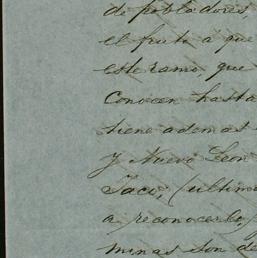 de pobladores,
el fruto á que
este ramo, que
Conocen hasta
tiene ademas
y Nuevo Leon
Jaco, (ultimo
a reconocerlo,
minas son de